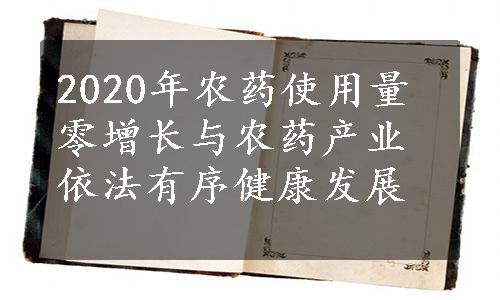 2020年农药使用量
零增长与农药产业
依法有序健康发展